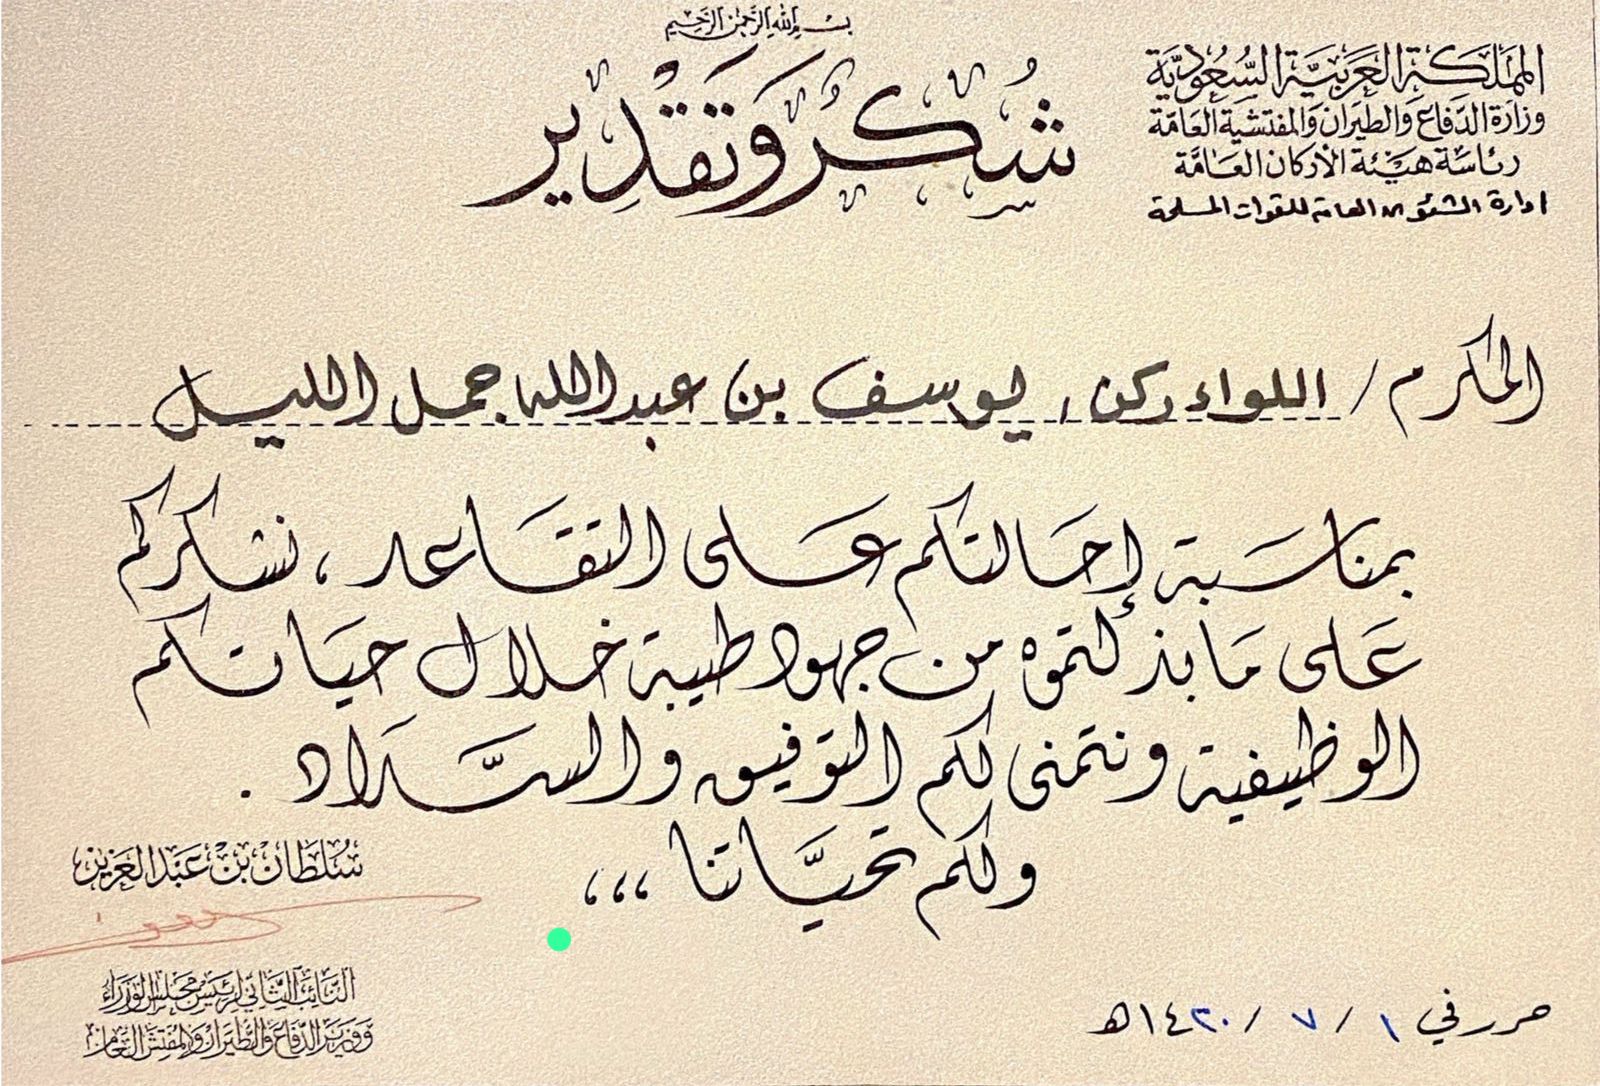 بسم الله الرحمن الرحيم
المملكة العربية السعودية
وزارة الدفاع والطيران والمفتشية العامة
رئاسة هيئة الأركان العامة
ادارة الشئون العامة للقوات المسلحة
شكر وتقدير
المكرم / اللواء ركن / يوسف بن عبدالله جمل الليل
بمناسبة إحالتكم على التقاعد ، نشكركم
على ما بذلتموه من جهود طيبة خلال حياتكم
الوظيفية ونتمنى لكم التوفيق والسداد .
ولكم تحياتنا ،،،
سلطان بن عبدالعزيز
النائب الثاني لرئيس مجلس الوزراء
ووزير الدفاع والطيران والمفتش العام
حرر في ١ / ٧ / ١٤٢٠هـ